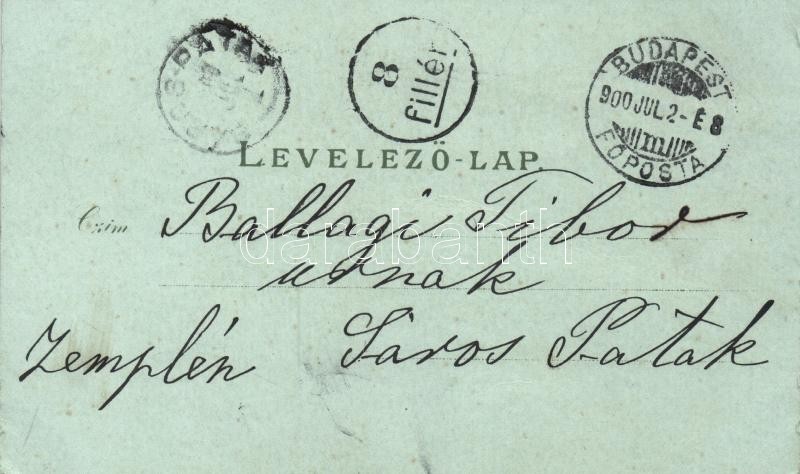 8
fillér
BUDAPEST
900 JUL. 2 - É 8
m
FŐPOSTA
LEVELEZŐ-LAP
Czim
Ballagi Tibor
urnak
Zemplén Sáros Patak
darabanth